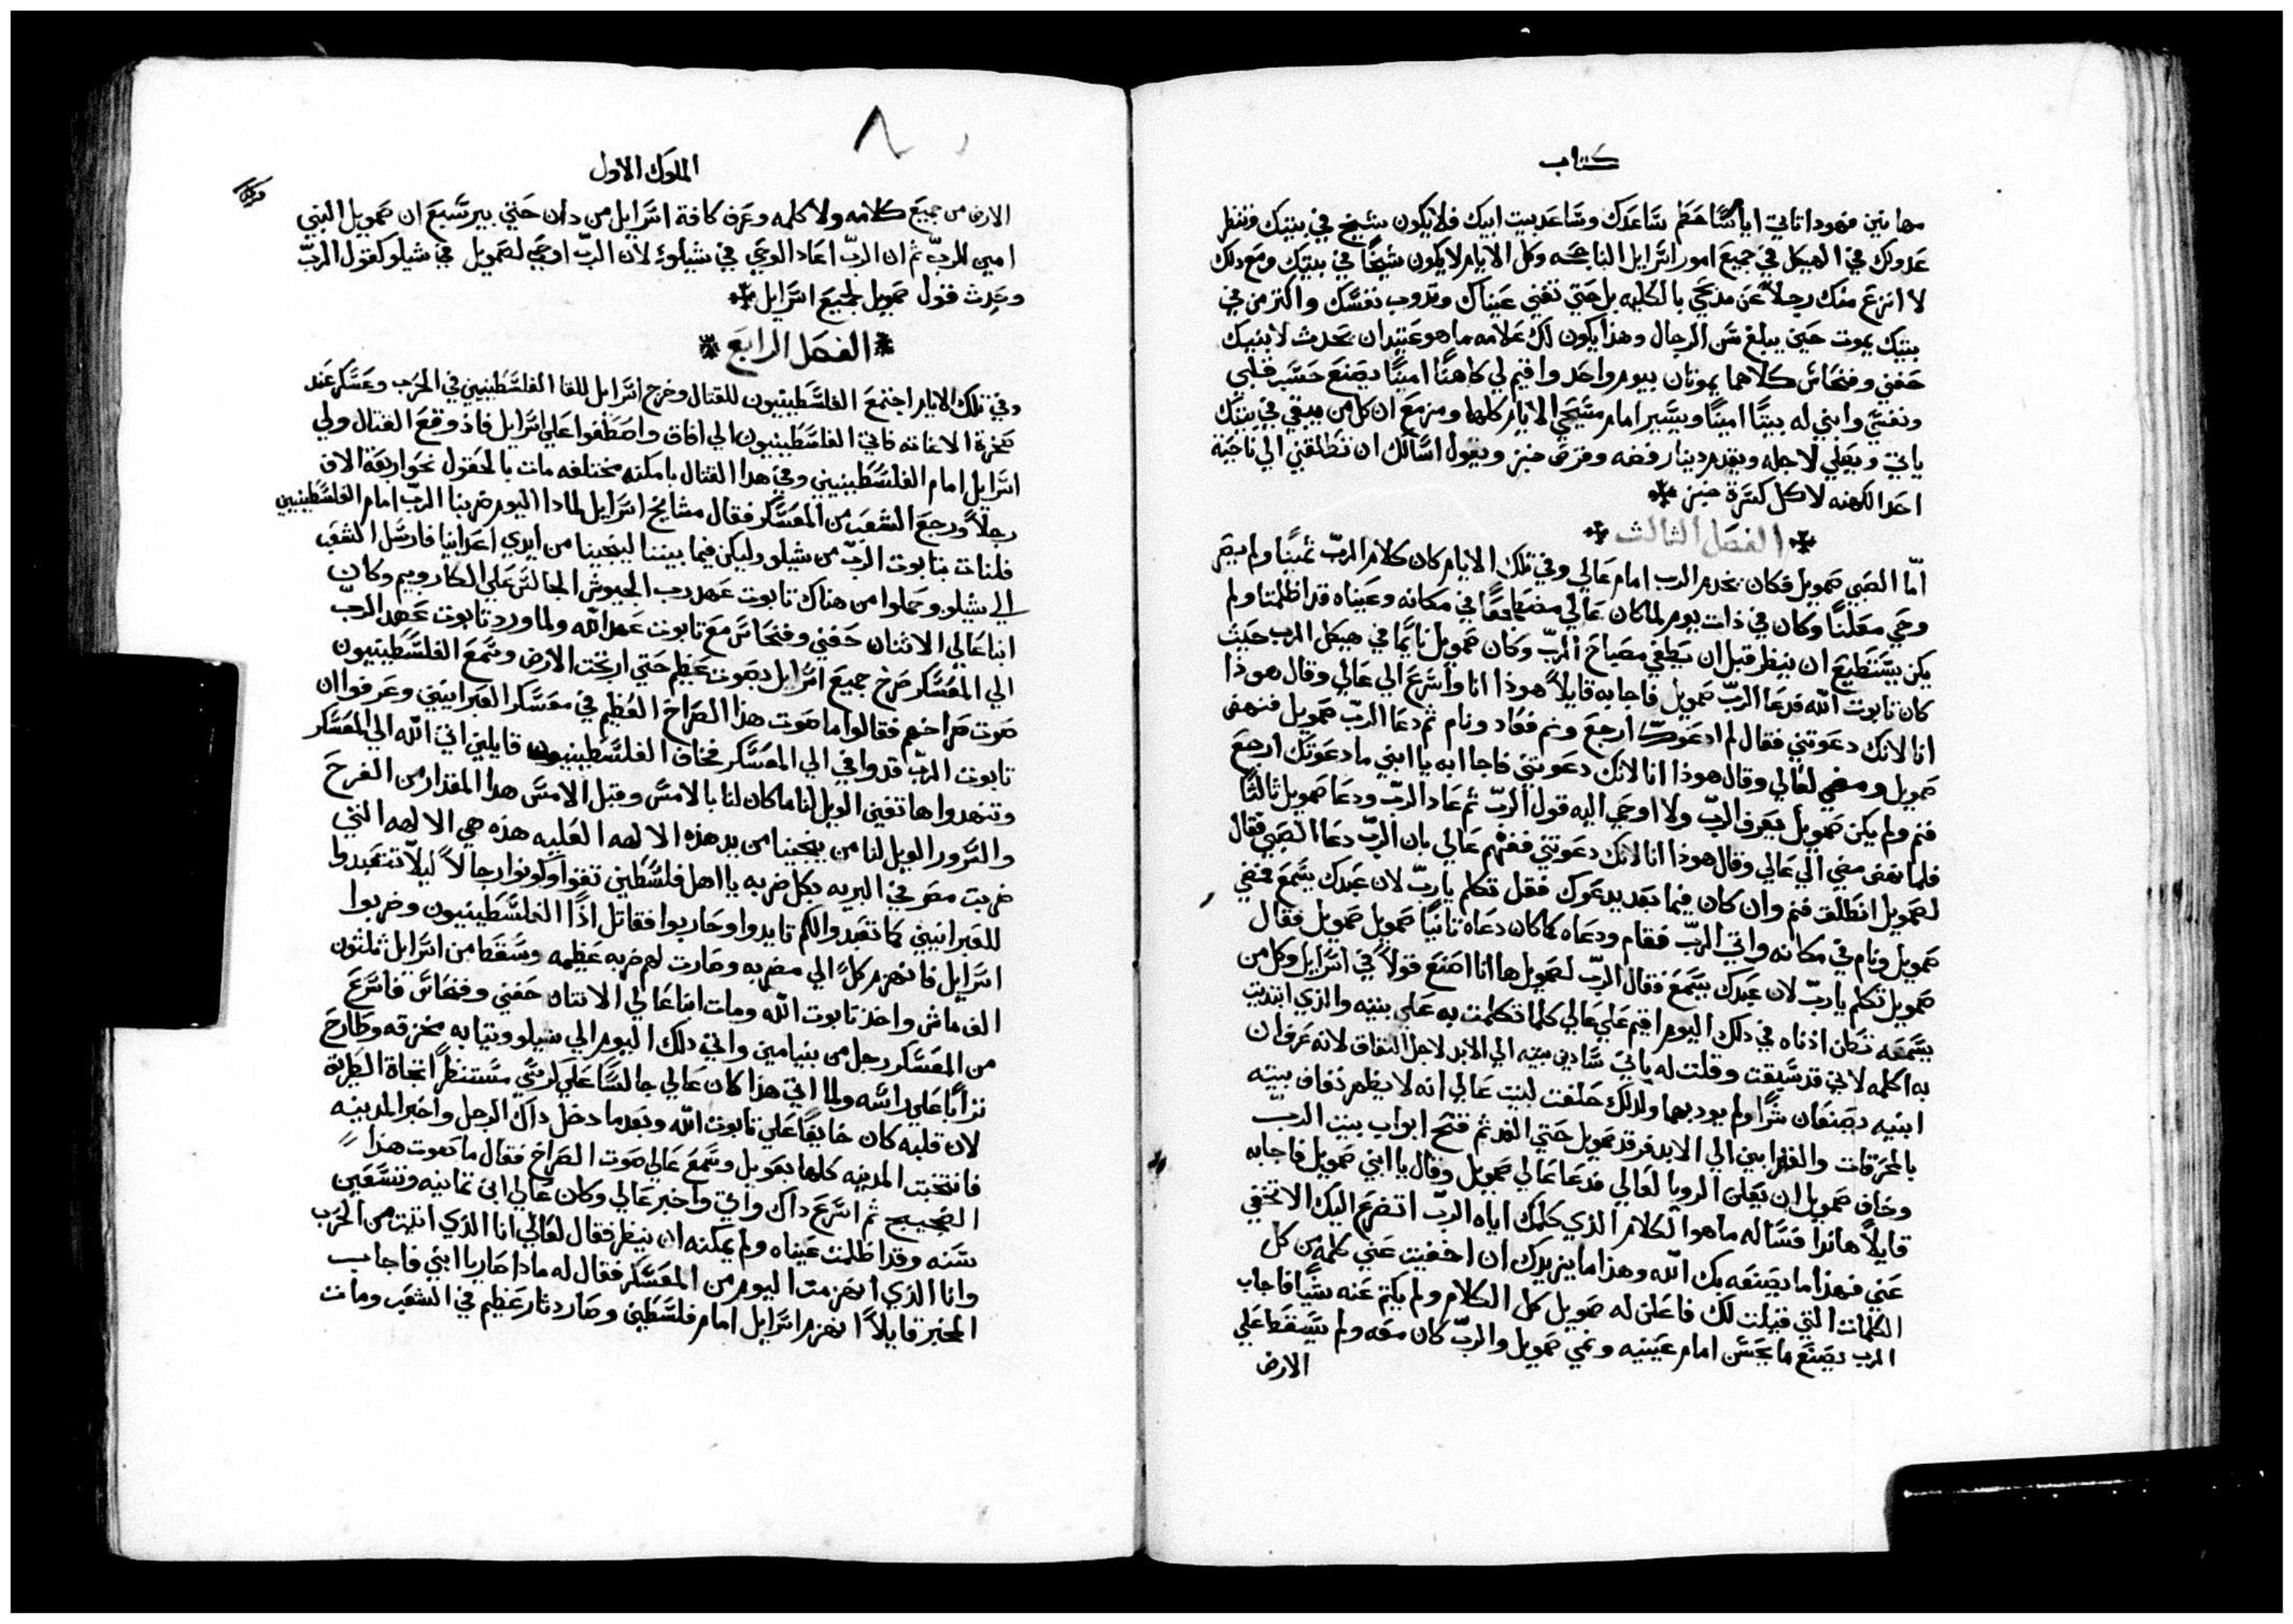 كتاب
مهانين فهودا تاتي ايام ساحطم ساعدك وساعد بيت ابيك فلا يكون شيخ في بيتك وتنظر
عدوك في الهيكل في جميع امور اسرايل الناجحه وكل الايام لا يكون شيخًا في بيتك ومع دلك
لا انزع منك رجلاً عن مذبحي بالكليه بل حتي تفني عيناك وتدوب نفسك واكثر من في
بيتك يموت حين يبلغ سن الرجال وهذا يكون لك علامه ما هو عتيد ان يحدث لابنيك
حفني وفنحاس كلاهما يموتان بيوم واحد واقيم لي كاهنًا امينًا يصنع حسب قلبي
ونفسي وابني له بيتًا امينًا ويسير امام مسيحي الايام كلها ومزمع ان كل من يبقي في بيتك
ياتي ويصلي لاجله ويقدم دينار فضه وقرص خبز ويقول اسالك ان تطلقني الي ناحية
احد الكهنه لاكل كسرة خبز
الفصل الثالث
امّا الصبي صمويل فكان يخدم الرب امام عالي وفي تلك الايام كان كلام الربّ ثمينًا ولم يصر
وحي معلنًا وكان في ذات يوم لما كان عالي مضطجعًا في مكانه وعيناه قد اظلمتا ولم
يكن يستطيع ان ينظر قبل ان يطفي مصباح الربّ وكان صمويل نايمًا في هيكل الرب حيث
كان تابوت الله فدعا الربّ صمويل فاجابه قايلاً هوذا انا واسرع الي عالي وقال هوذا
انا لانك دعوتني فقال لم ادعوك ارجع ونم فعاد ونام ثم دعا الربّ صمويل فنهض
صمويل ومضي لعالي وقال هوذا انا لانك دعوتني فاجاابه يا ابني ما دعوتك ارجع
فنم ولم يكن صمويل يعرف الربّ ولا اوحي اليه قول الربّ ثم عاد الربّ ودعا صمويل ثالثًا
فلما نهض مضي الي عالي وقال هوذا انا لانك دعوتني ففهم عالي بان الربّ دعا الصبي فقال
لصمويل انطلق فنم وان كان فيما بعد يدعوك فقل تكلم يا ربّ لان عبدك يسمع فمضي
صمويل ونام في مكانه واتي الربّ فقام ودعاه كما كان دعاه ثانيًا صمويل صمويل فقال
صمويل تكلم يا ربّ لان عبدك يسمع فقال الربّ لصمويل ها انا اصنع قولاً في اسرايل وكل من
يسمعه تطن اذناه في دلك اليوم اقيم علي عالي كلما تكلمت به علي بيته والذي ابتديت
به اكمله لاني قد سبقت وقلت له باني سادين بيته الي الابد لاجل النفاق لانه عرف ان
ابنيه يصنعان شرًا ولم يودبهما ولذلك حلفت لبيت عالي انه لا يطهر نفاق بيته
بالمحرقات والقرابين الي الابد فرقد صمويل حتي الغد ثم فتح ابواب بيت الربّ
وخاف صمويل ان يعلن الرويا لعالي فدعا عالي صمويل وقال يا ابني صمويل فاجابه
قايلاً هانذا فساله ما هو الكلام الذي كلمك اياه الربّ اتضرع اليك الا تخفي
عني فهذا ما يصنعه بك الله وهذا ما يزيدك ان اخفيت عني كلمه من كل
الكلمات التي قيلت لك فاعلن له صمويل كل الكلام ولم يكتم عنه شيًا فاجاب
الرب يصنع ما يحسن امام عينيه ونمي صمويل والربّ كان معه ولم يسقط علي
الارض
الملوك الاول
الارض من جميع كلامه ولا كلمه وعرف كافة اسرايل من دان حتي بير سبع ان صمويل النبي
امين للربّ ثم ان الربّ اعاد الوحي في شيلو لان الربّ اوحي لصمويل في شيلو كقول الربّ
وحدث قول صمويل لجميع اسرايل
الفصل الرابع
وفي تلك الايام اجتمع الفلسطينيون للقتال وخرج اسرايل للقا الفلسطينيين في الحرب وعسكر عند
صخرة الاغاثه فاتي الفلسطينيون الي افاق واصطفوا علي اسرايل فاذ وقع القتال ولي
اسرايل امام الفلسطينيين وفي هدا القتال بامكنه مختلفه مات بالحقول نحو اربعة الاف
رجلاً ورجع الشعب من المعسكر فقال مشايخ اسرايل لمادا اليوم ضربنا الربّ امام الفلسطينيين
فلنات بتابوت الربّ من شيلو وليكن فيما بيننا لينجينا من ايدي اعداينا فارسل الشعب
الي شيلو وحملوا من هناك تابوت عهد رب الجيوش الجالس علي الكاروبيم وكان
ابنا عالي الاثنان حفني وفنحاس مع تابوت عهد الله ولما ورد تابوت عهد الربّ
الي المعسكر صرخ جميع اسرايل بصوت عظيم حتي ارتجت الارض وسمع الفلسطينيون
صوت صراخهم فقالوا ما صوت هذا الصراخ العظيم في معسكر العبرانيين وعرفوا ان
تابوت الربّ قد وافي الي المعسكر فخاف الفلسطينيون قايلين اتي الله الي المعسكر
وتنهدوا هاتفين الويل لنا ما كان لنا بالامس وقبل الامس هدا المقدار من الفرح
والسرور الويل لنا من ينجينا من يد هذه الالهه العليه هذه هي الالهه التي
ضربت مصر في البريه بكل ضربه يا اهل فلسطين تقووا وكونوا رجالاً ليلاّ تتعبدوا
للعبرانيين كما تعبدوا لكم تايدوا وحاربوا فقاتل اذًا الفلسطينيون وضربوا
اسرايل فانهزم كلً الي مضربه وصارت لهم ضربه عظيمه وسقط من اسرايل ثلثون
الف ماش واخذ تابوت الله ومات ابنا عالي الاثنان حفني وفنحاس فاسرع
من المعسكر رجل من بنيامين واتي دلك اليوم الي شيلو وثيابه مخزقه وطارح
ترابًا علي راسه ولما اتي هذا كان عالي جالسًا علي كرسي مستنظرًا تجاه الطريق
لان قلبه كان خايفًا علي تابوت الله وبعد ما دخل داك الرجل واخبر المدينه
فانتحبت المدينه كلها بعويل وسمع عالي صوت الصراخ فقال ما صوت هذا
الضجيج ثم اسرع داك واتي واخبر عالي وكان عالي ابن ثمانيه وتسعين
سنه وقد اظلمت عيناه ولم يمكنه ان ينظر فقال لعالي انا الذي اتيت من الحرب
وانا الذي انهزمت اليوم من المعسكر فقال له ماذا صار يا ابني فاجاب
المخبر قايلاً انهزم اسرايل امام فلسطين وصار دثار عظيم في الشعب ومات